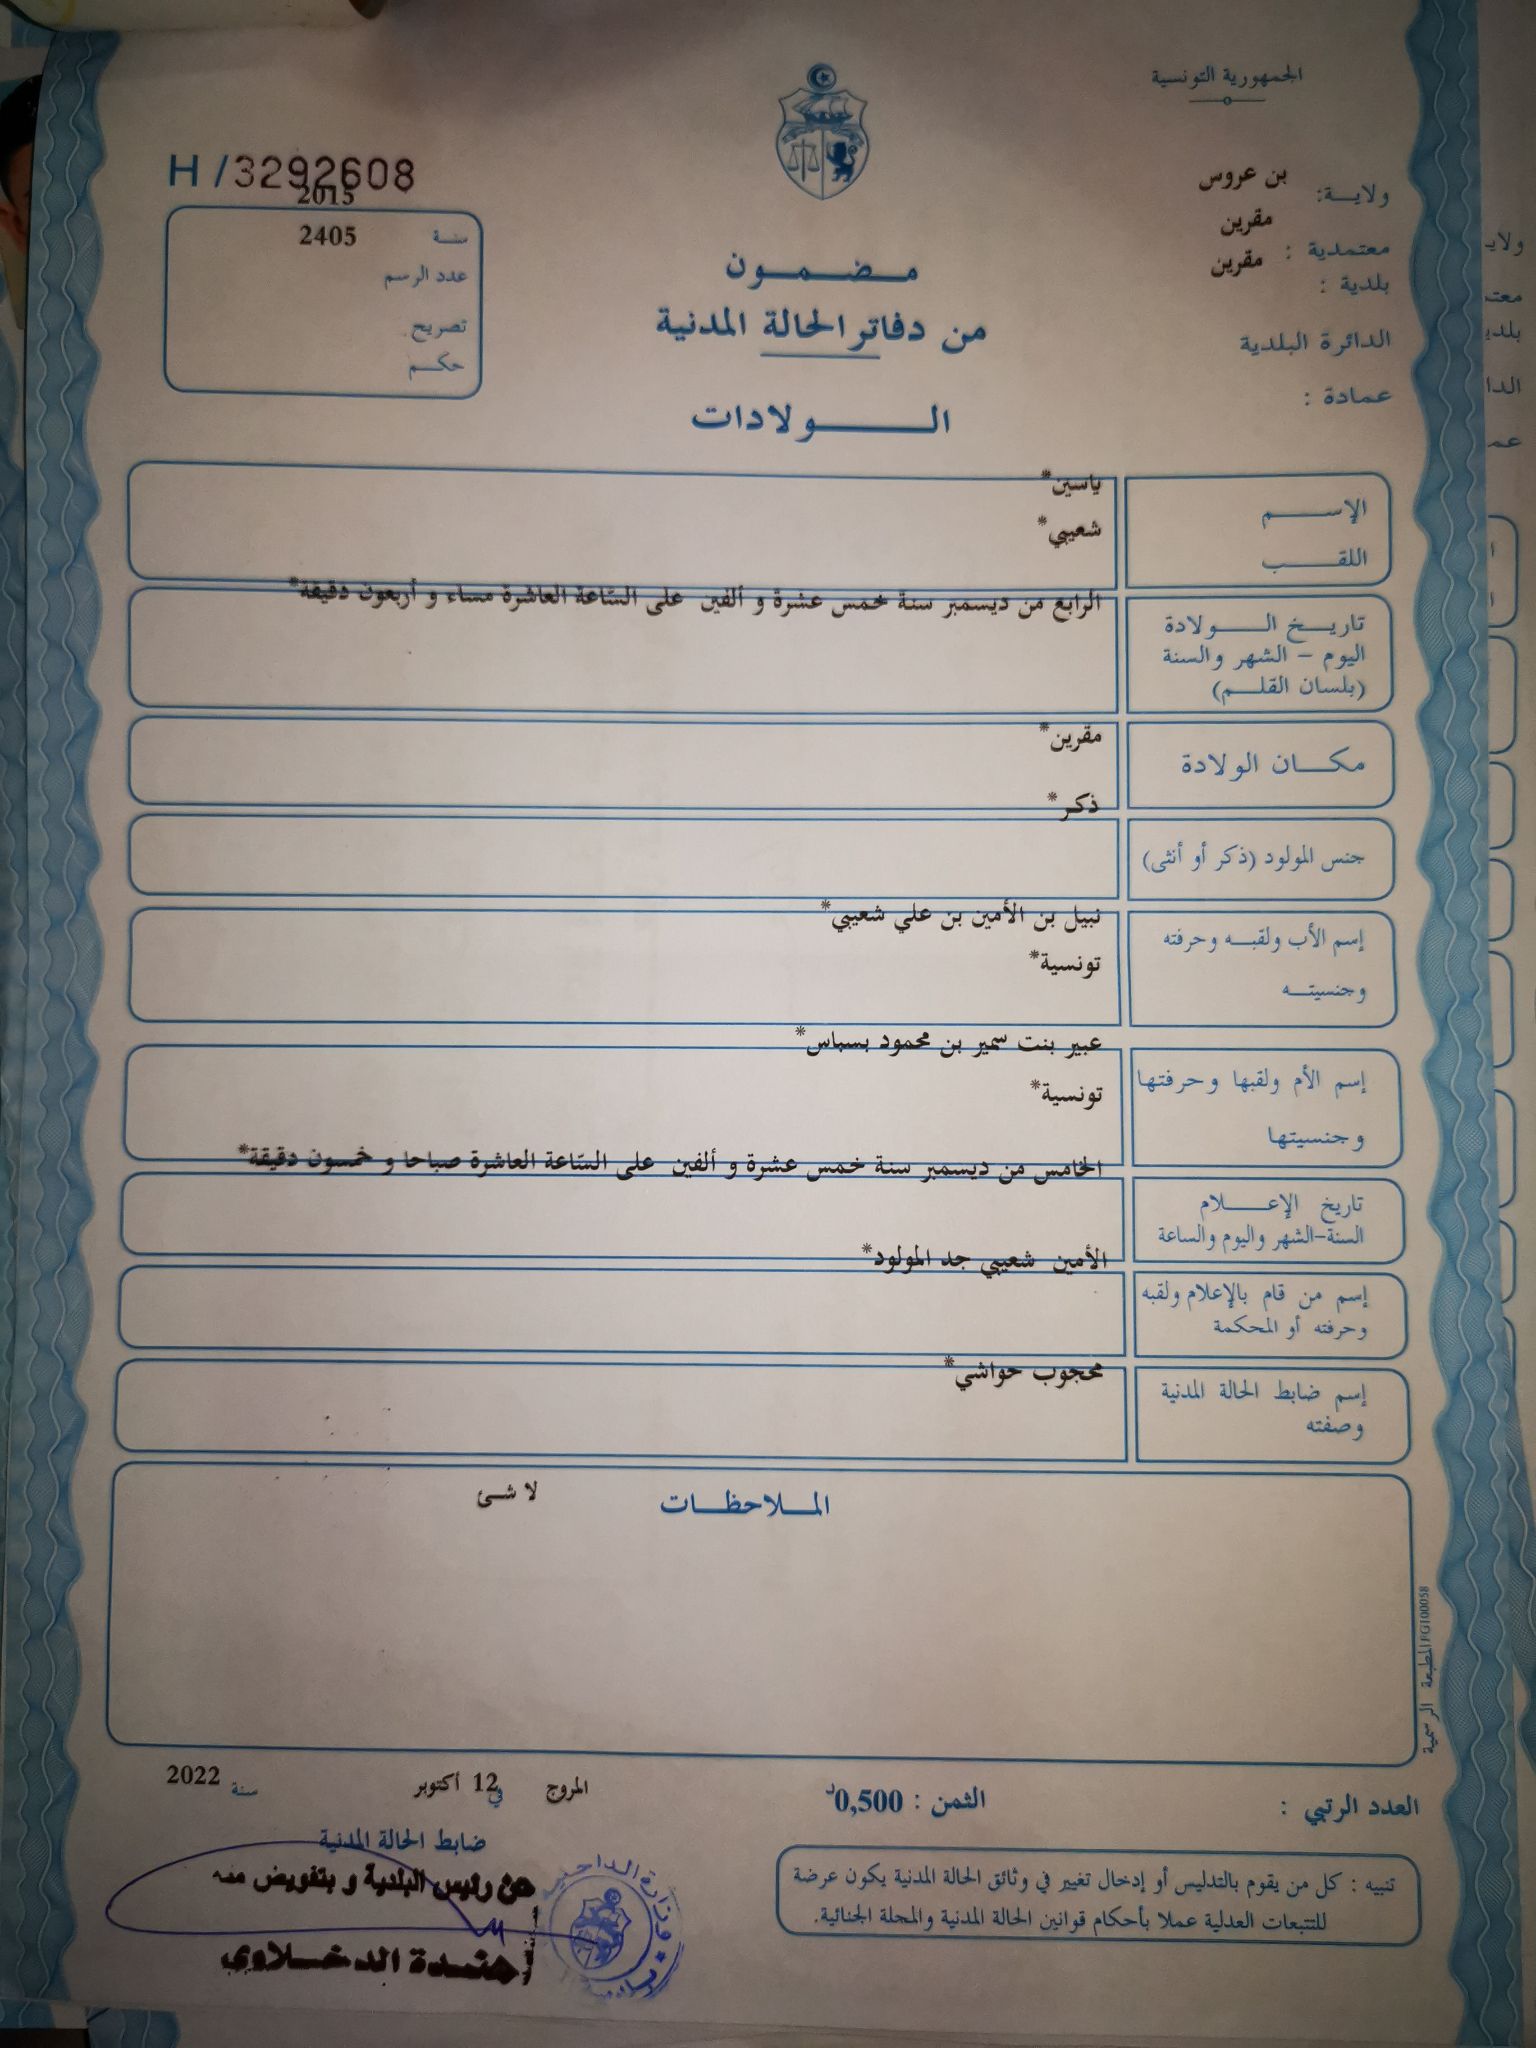 الجمهورية التونسية
ولايـــة: بن عروس
معتمدية : مقرين
بلدية : مقرين
الدائرة البلدية
عمادة :
H/3292608
2015
سنـة 2405
عدد الرسم
تصريح
حكـم
مـضـمـون
من دفاتر الحالة المدنية
الـولادات
الإسـم
ياسين*
اللقـب
شعيبي*
تاريـخ الـولادة
اليوم - الشهر والسنة
(بلسان القلـم)
الرابع من ديسمبر سنة خمس عشرة و ألفين على السّاعة العاشرة مساء و أربعون دقيقة*
مكـان الولادة
مقرين*
جنس المولود (ذكر أو أنثى)
ذكر*
إسم الأب ولقبـه وحرفته
وجنسيتـه
نبيل بن الأمين بن علي شعيبي*
تونسية*
إسم الأم ولقبها وحرفتها
وجنسيتها
عبير بنت سمير بن محمود بسباس*
تونسية*
تاريخ الإعـلام
السنة-الشهر واليوم والساعة
الخامس من ديسمبر سنة خمس عشرة و ألفين على السّاعة العاشرة صباحا و خمسون دقيقة*
إسم من قام بالإعلام ولقبه
وحرفته أو المحكمة
الأمين شعيبي جد المولود*
إسم ضابط الحالة المدنية
وصفته
محجوب حواشي*
المـلاحظـات
لا شئ
المطبعة الرسمية FG100058
العدد الرتبي :
الثمن : 0,500د
المروج في 12 أكتوبر سنة 2022
ضابط الحالة المدنية
عن رئيس البلدية و بتفويض منه
هندة الدخـلاوي
وزارة الداخلية
تنبيه : كل من يقوم بالتدليس أو إدخال تغيير في وثائق الحالة المدنية يكون عرضة
للتتبعات العدلية عملا بأحكام قوانين الحالة المدنية والمجلة الجنائية.
ولايـ
بلديـ
الدا
عمـ